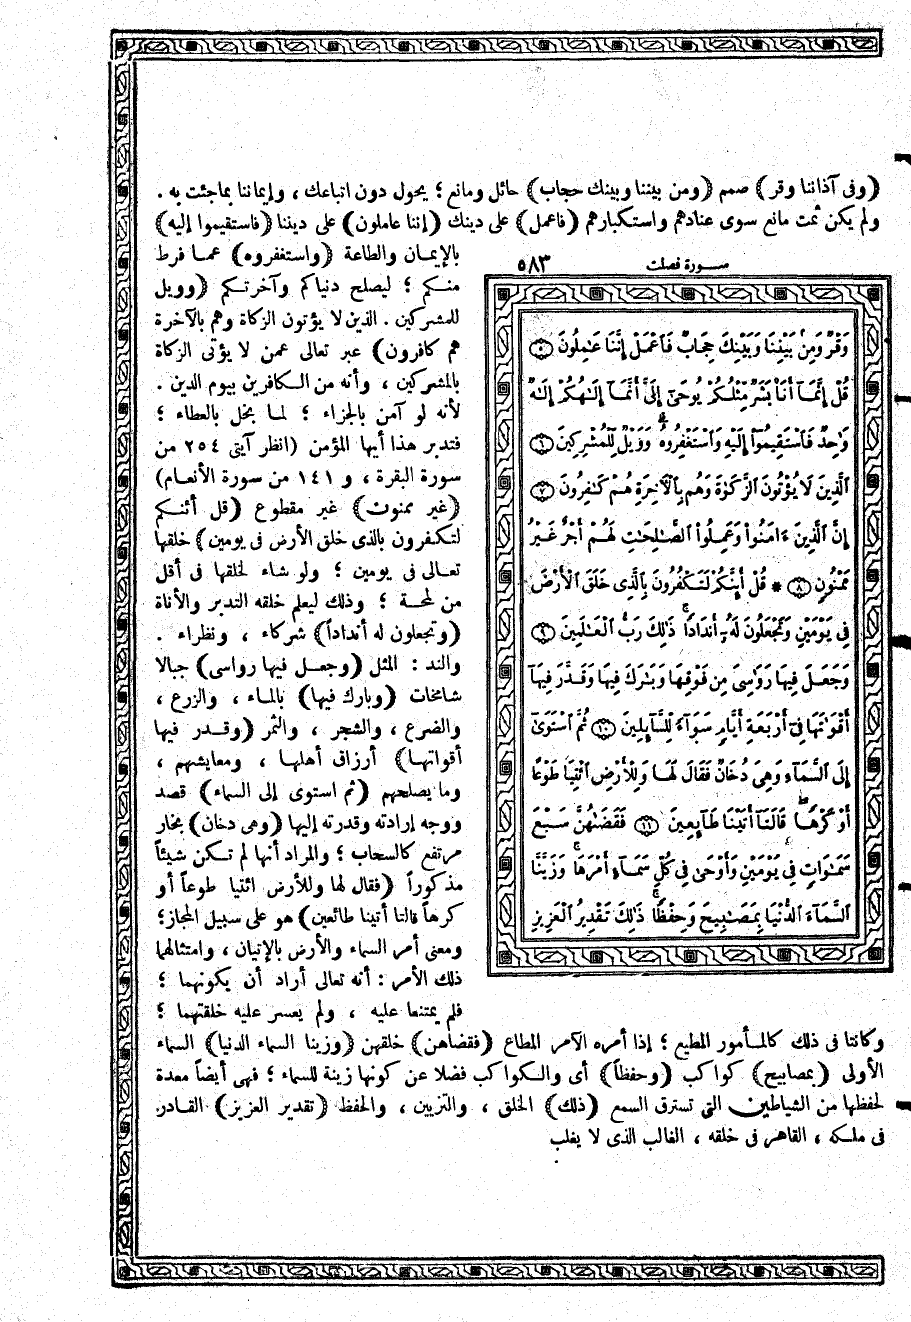 (وفى آذاننا وقر) صمم (ومن بيننا وبينك حجاب) حائل ومانع ؛ يحول دون اتباعك ، وإيماننا بماجئت به .
ولم يكن ثمت مانع سوى عنادهم واستكبارهم (فاعمل) على دينك (إننا عاملون) على ديننا (فاستقيموا إليه)
بالإيمان والطاعة (واستغفروه) عما فرط
منكم ؛ ليصلح دنياكم وآخرتكم (وويل
للمشركين . الذين لا يؤتون الزكاة وهم بالآخرة
هم كافرون) عبر تعالى عمن لا يؤتى الزكاة
بالمشركين ، وأنه من الكافرين بيوم الدين .
لأنه لو آمن بالجزاء ؛ لما بخل بالعطاء ؛
فتدبر هذا أيها المؤمن (انظر آيتى ٢٥٤ من
سورة البقرة ، و ١٤١ من سورة الأنعام)
(غير ممنون) غير مقطوع (قل أئنكم
لتكفرون بالذى خلق الأرض فى يومين) خلقها
تعالى فى يومين ؛ ولو شاء لخلقها فى أقل
من لمحة ؛ وذلك ليعلم خلقه التدبر والأناة
(وتجعلون له أنداداً) شركاء ، ونظراء .
والند : المثل (وجعل فيها رواسى) جبالا
شامخات (وبارك فيها) بالماء ، والزرع ،
والضرع ، والشجر ، والثمر (وقدر فيها
أقواتها) أرزاق أهلها ، ومعايشهم ،
وما يصلحهم (ثم استوى إلى السماء) قصد
ووجه إرادته وقدرته إليها (وهى دخان) بخار
مرتفع كالسحاب ؛ والمراد أنها لم تكن شيئاً
مذكوراً (فقال لها وللأرض ائتيا طوعاً أو
كرهاً قالتا أتينا طائعين) هو على سبيل المجاز؛
ومعنى أمر السماء والأرض بالإتيان ، وامتثالهما
ذلك الأمر : أنه تعالى أراد أن يكونهما ؛
فلم يمتنعا عليه ، ولم يعسر عليه خلقتهما ؛
سورة فصلت ٥٨٣
وَقْرٌ وَمِنۢ بَيْنِنَا وَبَيْنِكَ حِجَابٌ فَاعْمَلْ إِنَّنَا عَٰمِلُونَ ٥
قُلْ إِنَّمَآ أَنَا۠ بَشَرٌ مِّثْلُكُمْ يُوحَىٰٓ إِلَىَّ أَنَّمَآ إِلَٰهُكُمْ إِلَٰهٌ
وَٰحِدٌ فَاسْتَقِيمُوٓا۟ إِلَيْهِ وَاسْتَغْفِرُوهُ ۗ وَوَيْلٌ لِّلْمُشْرِكِينَ ٦
الَّذِينَ لَا يُؤْتُونَ الزَّكَوٰةَ وَهُم بِالْأَخِرَةِ هُمْ كَٰفِرُونَ ٧
إِنَّ الَّذِينَ ءَامَنُوا۟ وَعَمِلُوا۟ الصَّٰلِحَٰتِ لَهُمْ أَجْرٌ غَيْرُ
مَمْنُونٍ ٨ * قُلْ أَئِنَّكُمْ لَتَكْفُرُونَ بِالَّذِى خَلَقَ الْأَرْضَ
فِى يَوْمَيْنِ وَتَجْعَلُونَ لَهُۥٓ أَندَادًا ۚ ذَٰلِكَ رَبُّ الْعَٰلَمِينَ ٩
وَجَعَلَ فِيهَا رَوَٰسِىَ مِن فَوْقِهَا وَبَٰرَكَ فِيهَا وَقَدَّرَ فِيهَآ
أَقْوَٰتَهَا فِىٓ أَرْبَعَةِ أَيَّامٍ سَوَآءً لِّلسَّآئِلِينَ ١٠ ثُمَّ اسْتَوَىٰٓ
إِلَى السَّمَآءِ وَهِىَ دُخَانٌ فَقَالَ لَهَا وَلِلْأَرْضِ ائْتِيَا طَوْعًا
أَوْ كَرْهًا ۖ قَالَتَآ أَتَيْنَا طَآئِعِينَ ١١ فَقَضَىٰهُنَّ سَبْعَ
سَمَٰوَاتٍ فِى يَوْمَيْنِ وَأَوْحَىٰ فِى كُلِّ سَمَآءٍ أَمْرَهَا ۚ وَزَيَّنَّا
السَّمَآءَ الدُّنْيَا بِمَصَٰبِيحَ وَحِفْظًا ۚ ذَٰلِكَ تَقْدِيرُ الْعَزِيزِ
وكانتا فى ذلك كالمأمور المطيع ؛ إذا أمره الآمر المطاع (فقضاهن) خلقهن (وزينا السماء الدنيا) السماء
الأولى (بمصابيح) كواكب (وحفظاً) أى والكواكب فضلا عن كونها زينة للسماء ؛ فهى أيضاً معدة
لحفظها من الشياطين التى تسترق السمع (ذلك) الخلق ، والتزيين ، والحفظ (تقدير العزيز) القادر
فى ملكه ، القاهر فى خلقه ، الغالب الذى لا يغلب